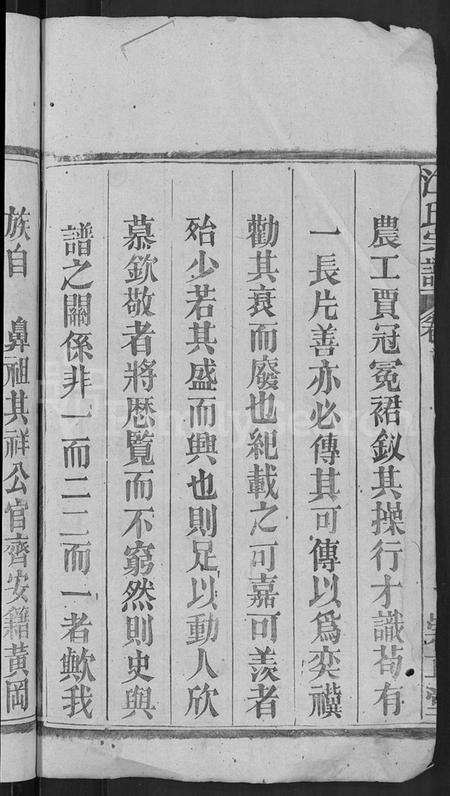 農工賈冠冕裙釵其操行才識苟有
一長片善亦必傳其可傳以為奕禩
勸其衰而廢也紀載之可嘉可羨者
殆少若其盛而興也則足以動人欣
慕欽敬者將歷覧而不窮然則史與
譜之關係非一而二二而一者歟我
族自 鼻祖其祥公官齊安籍黃岡